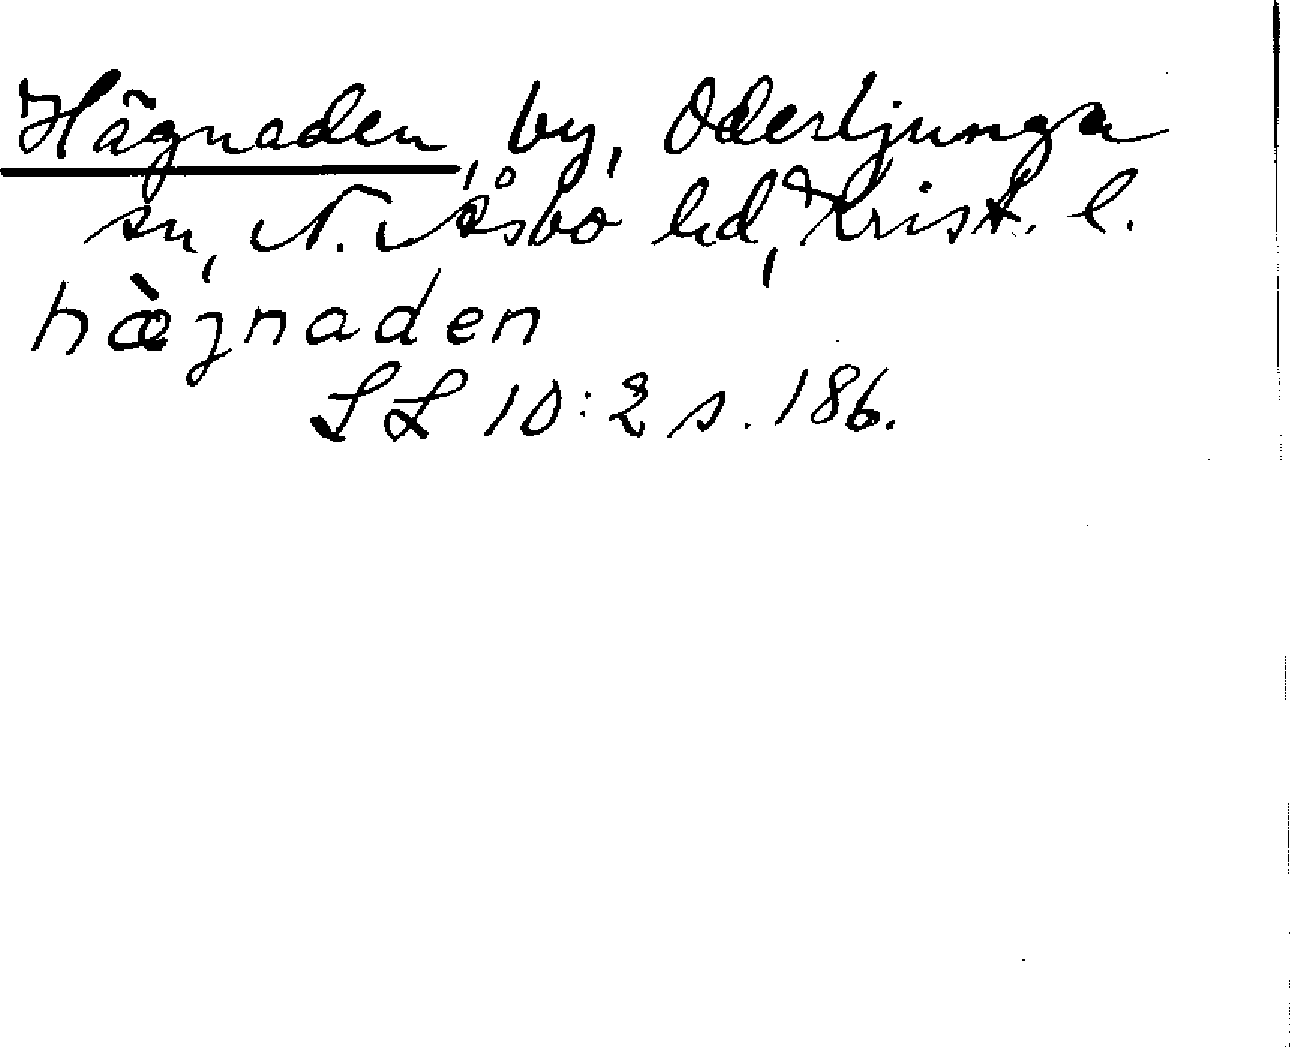 Hägnaden, by, Oderljunga
sn, N. Åsbo hd, Krist. l.
hægnaden
SL 10:2 s. 186.